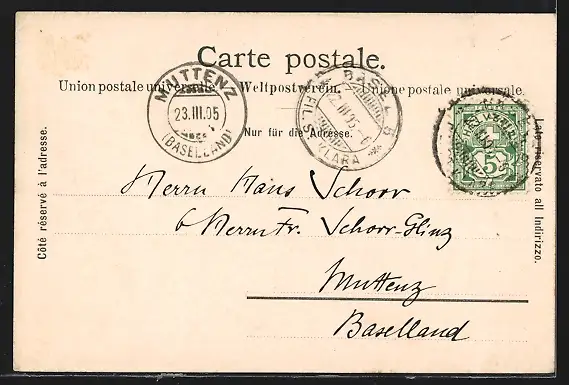 Carte postale.
Union postale universelle. Weltpostverein. Unione postale universale.
Nur für die Adresse.
MUTTENZ
23.III.05
(BASELLAND)
BASEL 5
FIL. ST. KLARA
HELVETIA
5
Côté réservé à l'adresse.
Lato riservato all' Indirizzo.
Herrn Hans Schorr
b/ Herrn Fr. Schorr-Glinz
Muttenz
Baselland